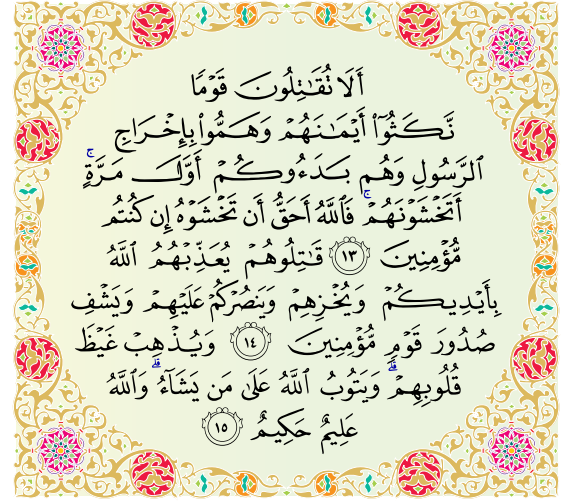 أَلَا تُقَٰتِلُونَ قَوْمًا
نَّكَثُوٓا۟ أَيْمَٰنَهُمْ وَهَمُّوا۟ بِإِخْرَاجِ
ٱلرَّسُولِ وَهُم بَدَءُوكُمْ أَوَّلَ مَرَّةٍ ۚ
أَتَخْشَوْنَهُمْ ۚ فَٱللَّهُ أَحَقُّ أَن تَخْشَوْهُ إِن كُنتُم
مُّؤْمِنِينَ ١٣ قَٰتِلُوهُمْ يُعَذِّبْهُمُ ٱللَّهُ
بِأَيْدِيكُمْ وَيُخْزِهِمْ وَيَنصُرْكُمْ عَلَيْهِمْ وَيَشْفِ
صُدُورَ قَوْمٍ مُّؤْمِنِينَ ١٤ وَيُذْهِبْ غَيْظَ
قُلُوبِهِمْ ۗ وَيَتُوبُ ٱللَّهُ عَلَىٰ مَن يَشَآءُ ۗ وَٱللَّهُ
عَلِيمٌ حَكِيمٌ ١٥